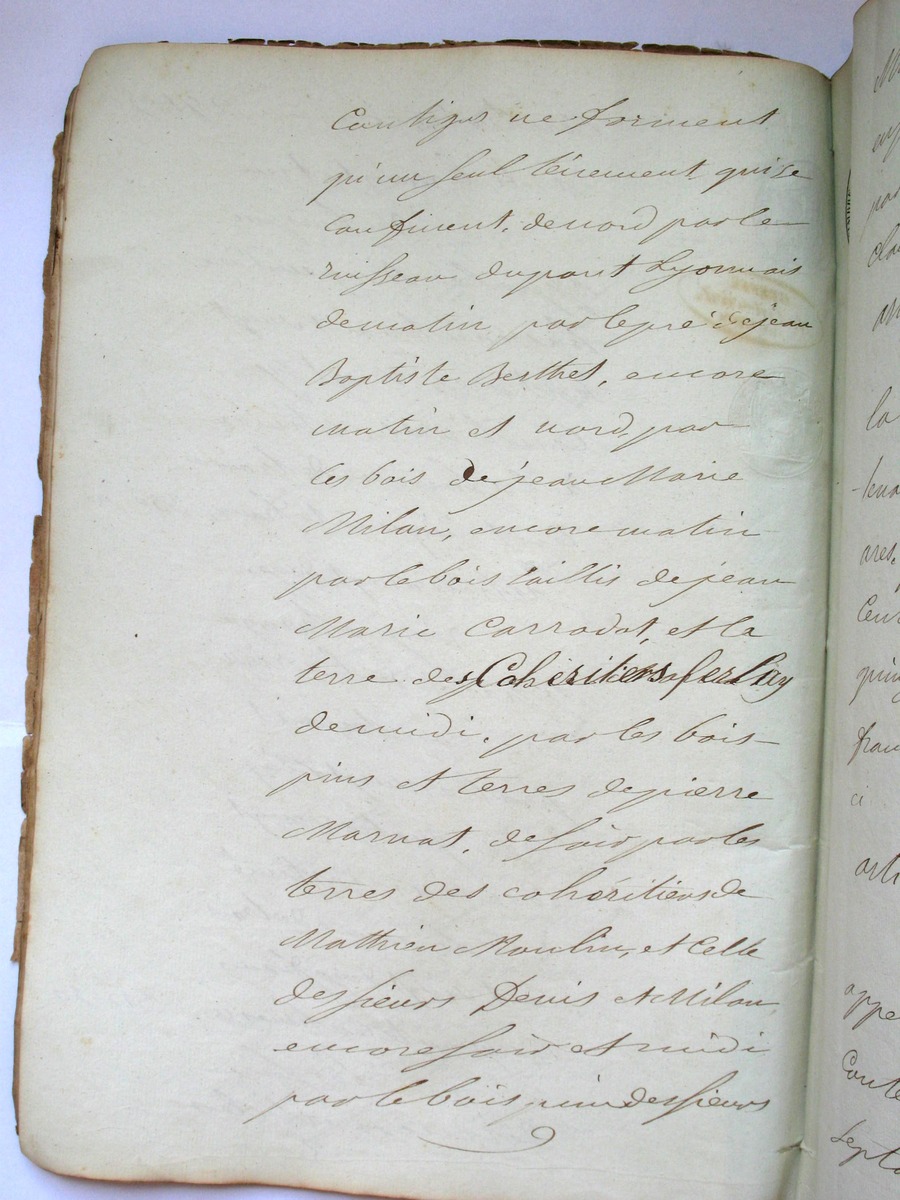 Contigus ne forment
qu'un seul ténement qui se
confinent, de nord par le
ruisseau du pont Lyonnais
de matin, par le pré de jean
Baptiste Berthet, encore
matin et nord, par
les bois de jean Marie
Milan, encore matin
par le bois taillis de jean
Marie Carradot, et la
terre des Cohéritiers ferlay
de midi, par les bois
pins et terres de pierre
Marnat, de soir par les
terres des cohéritiers de
Mathieu Moulin, et celle
des sieurs Denis et Milan,
encore soir et midi
par le bois pin des sieurs